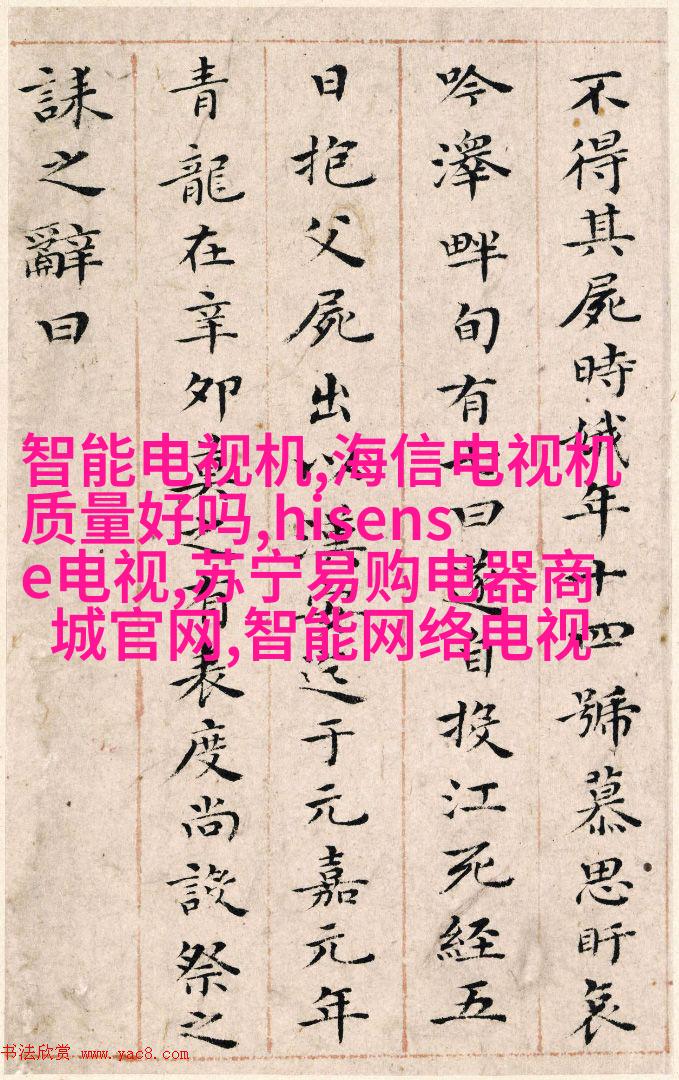 不得其屍時娥年十四號慕思盱哀
吟澤畔旬有七日遂自投江死經五
日抱父屍出以漢安迄于元嘉元年
青龍在辛卯莫之有表度尚設祭之
誄之辭曰
智能电视机,海信电视机
质量好吗,hisens
e电视,苏宁易购电器商
城官网,智能网络电视
书法欣赏 www.yac8.com